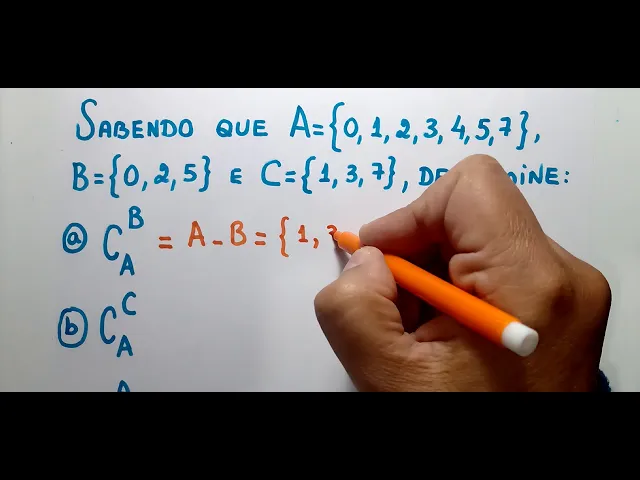 SABENDO QUE A={0,1,2,3,4,5,7},
B={0,2,5} E C={1,3,7}, INE:
a C_A^B = A-B={1,
b C_A^C